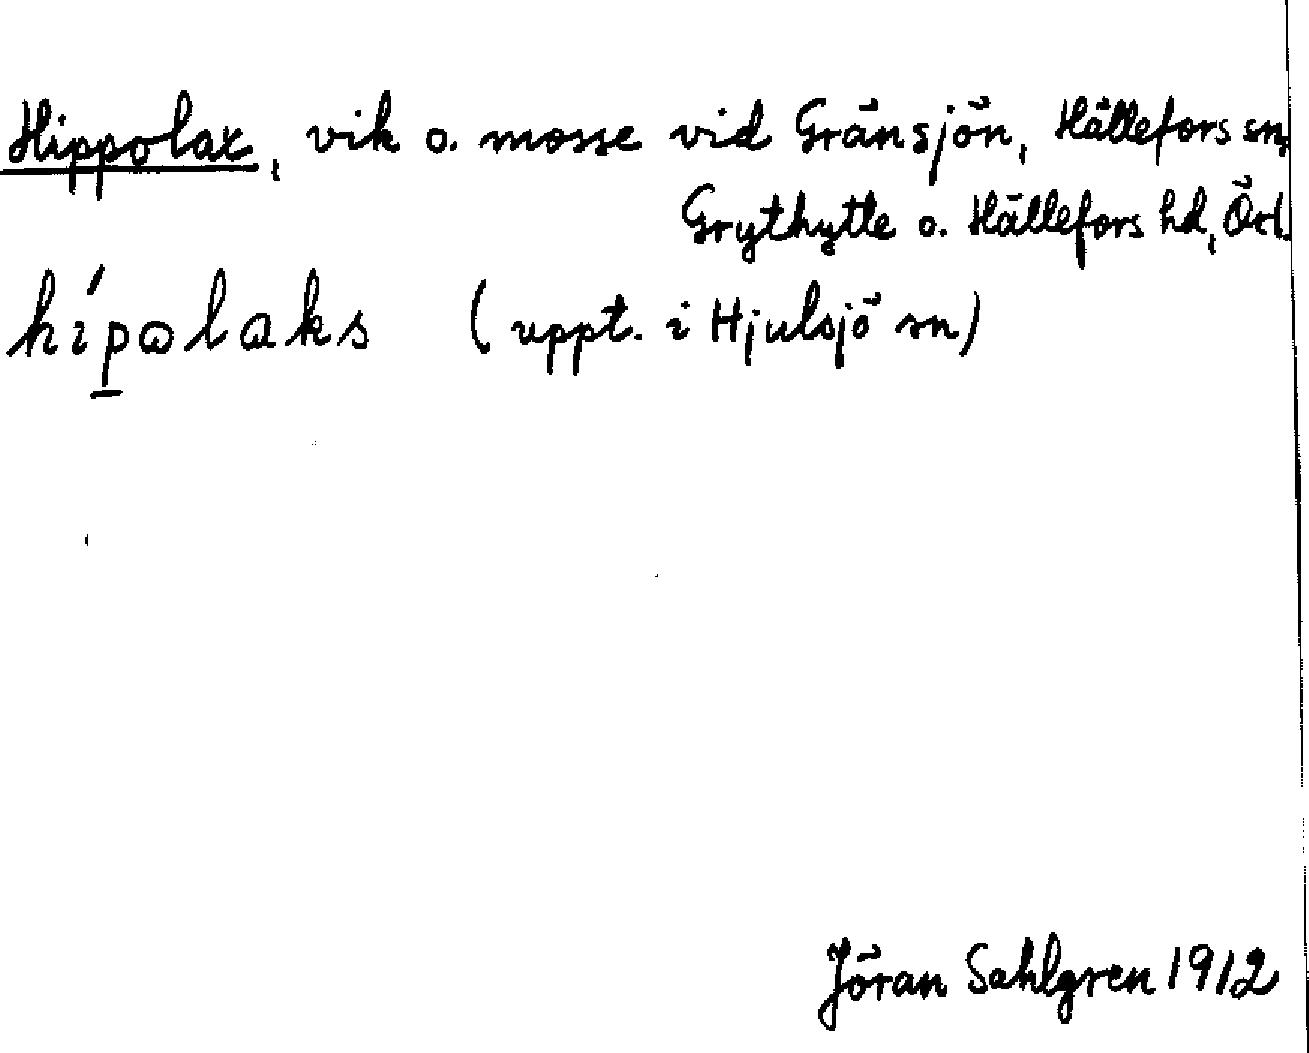 Hippolax, vik o. mosse vid Gränsjön, Hällefors sn,
Grythytte o. Hällefors hd, Örl.
hípolaks (uppt. i Hjulsjö sn)
Jöran Sahlgren 1912